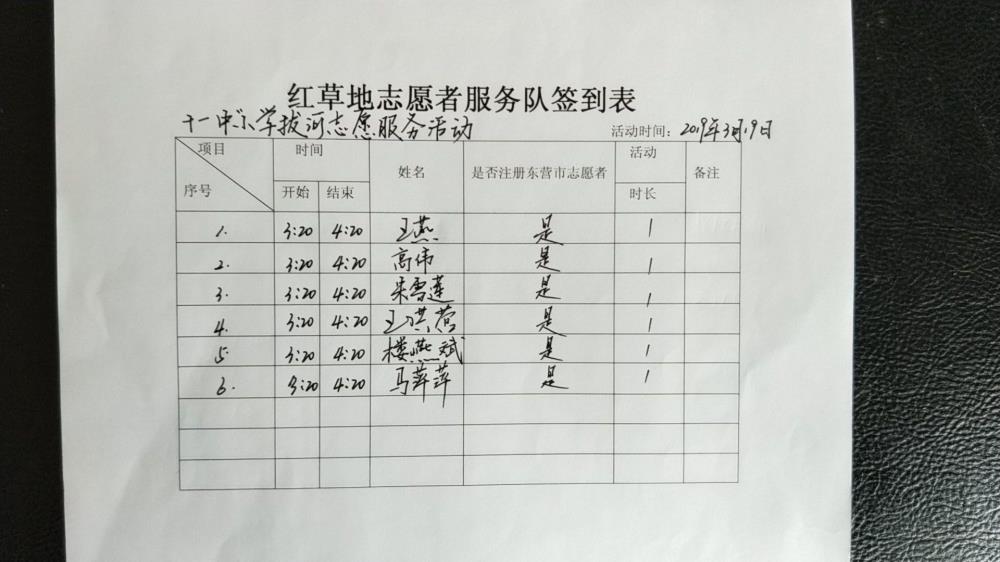 红草地志愿者服务队签到表
十一中小学拔河志愿服务活动 活动时间：2019年3月19日
项目 时间 姓名 是否注册东营市志愿者 活动 备注
序号 开始 结束 时长
1. 3:20 4:20 王燕 是 1
2. 3:20 4:20 高伟 是 1
3. 3:20 4:20 朱雪莲 是 1
4. 3:20 4:20 王洪营 是 1
5. 3:20 4:20 楼燕斌 是 1
6. 3:20 4:20 马萍萍 是 1